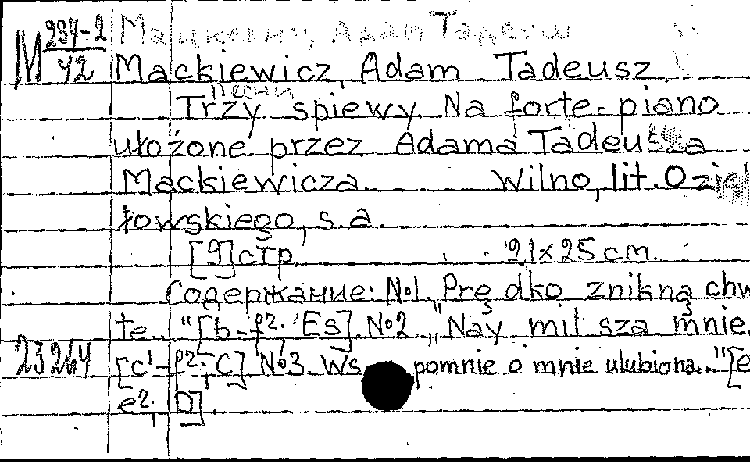 M 237-2/42
Мацкевич, Адам Тадеуш
Mackiewicz, Adam Tadeusz.
Песни
Trzy spiewy Na forte-piano
ułożone przez Adama Tadeusza
Mackiewicza. Wilno, lit. Oziębłowskiego, s.a.
[9] стр. 21x25 cm.
Содержание: №1. Prędko znikną chw
te.." [b-f²; Es]. №2 „Nay mil sza mnie.
23264
[c¹-f²; C] №3. Ws pomnie o mnie ulubiona.." [e
e²; D].